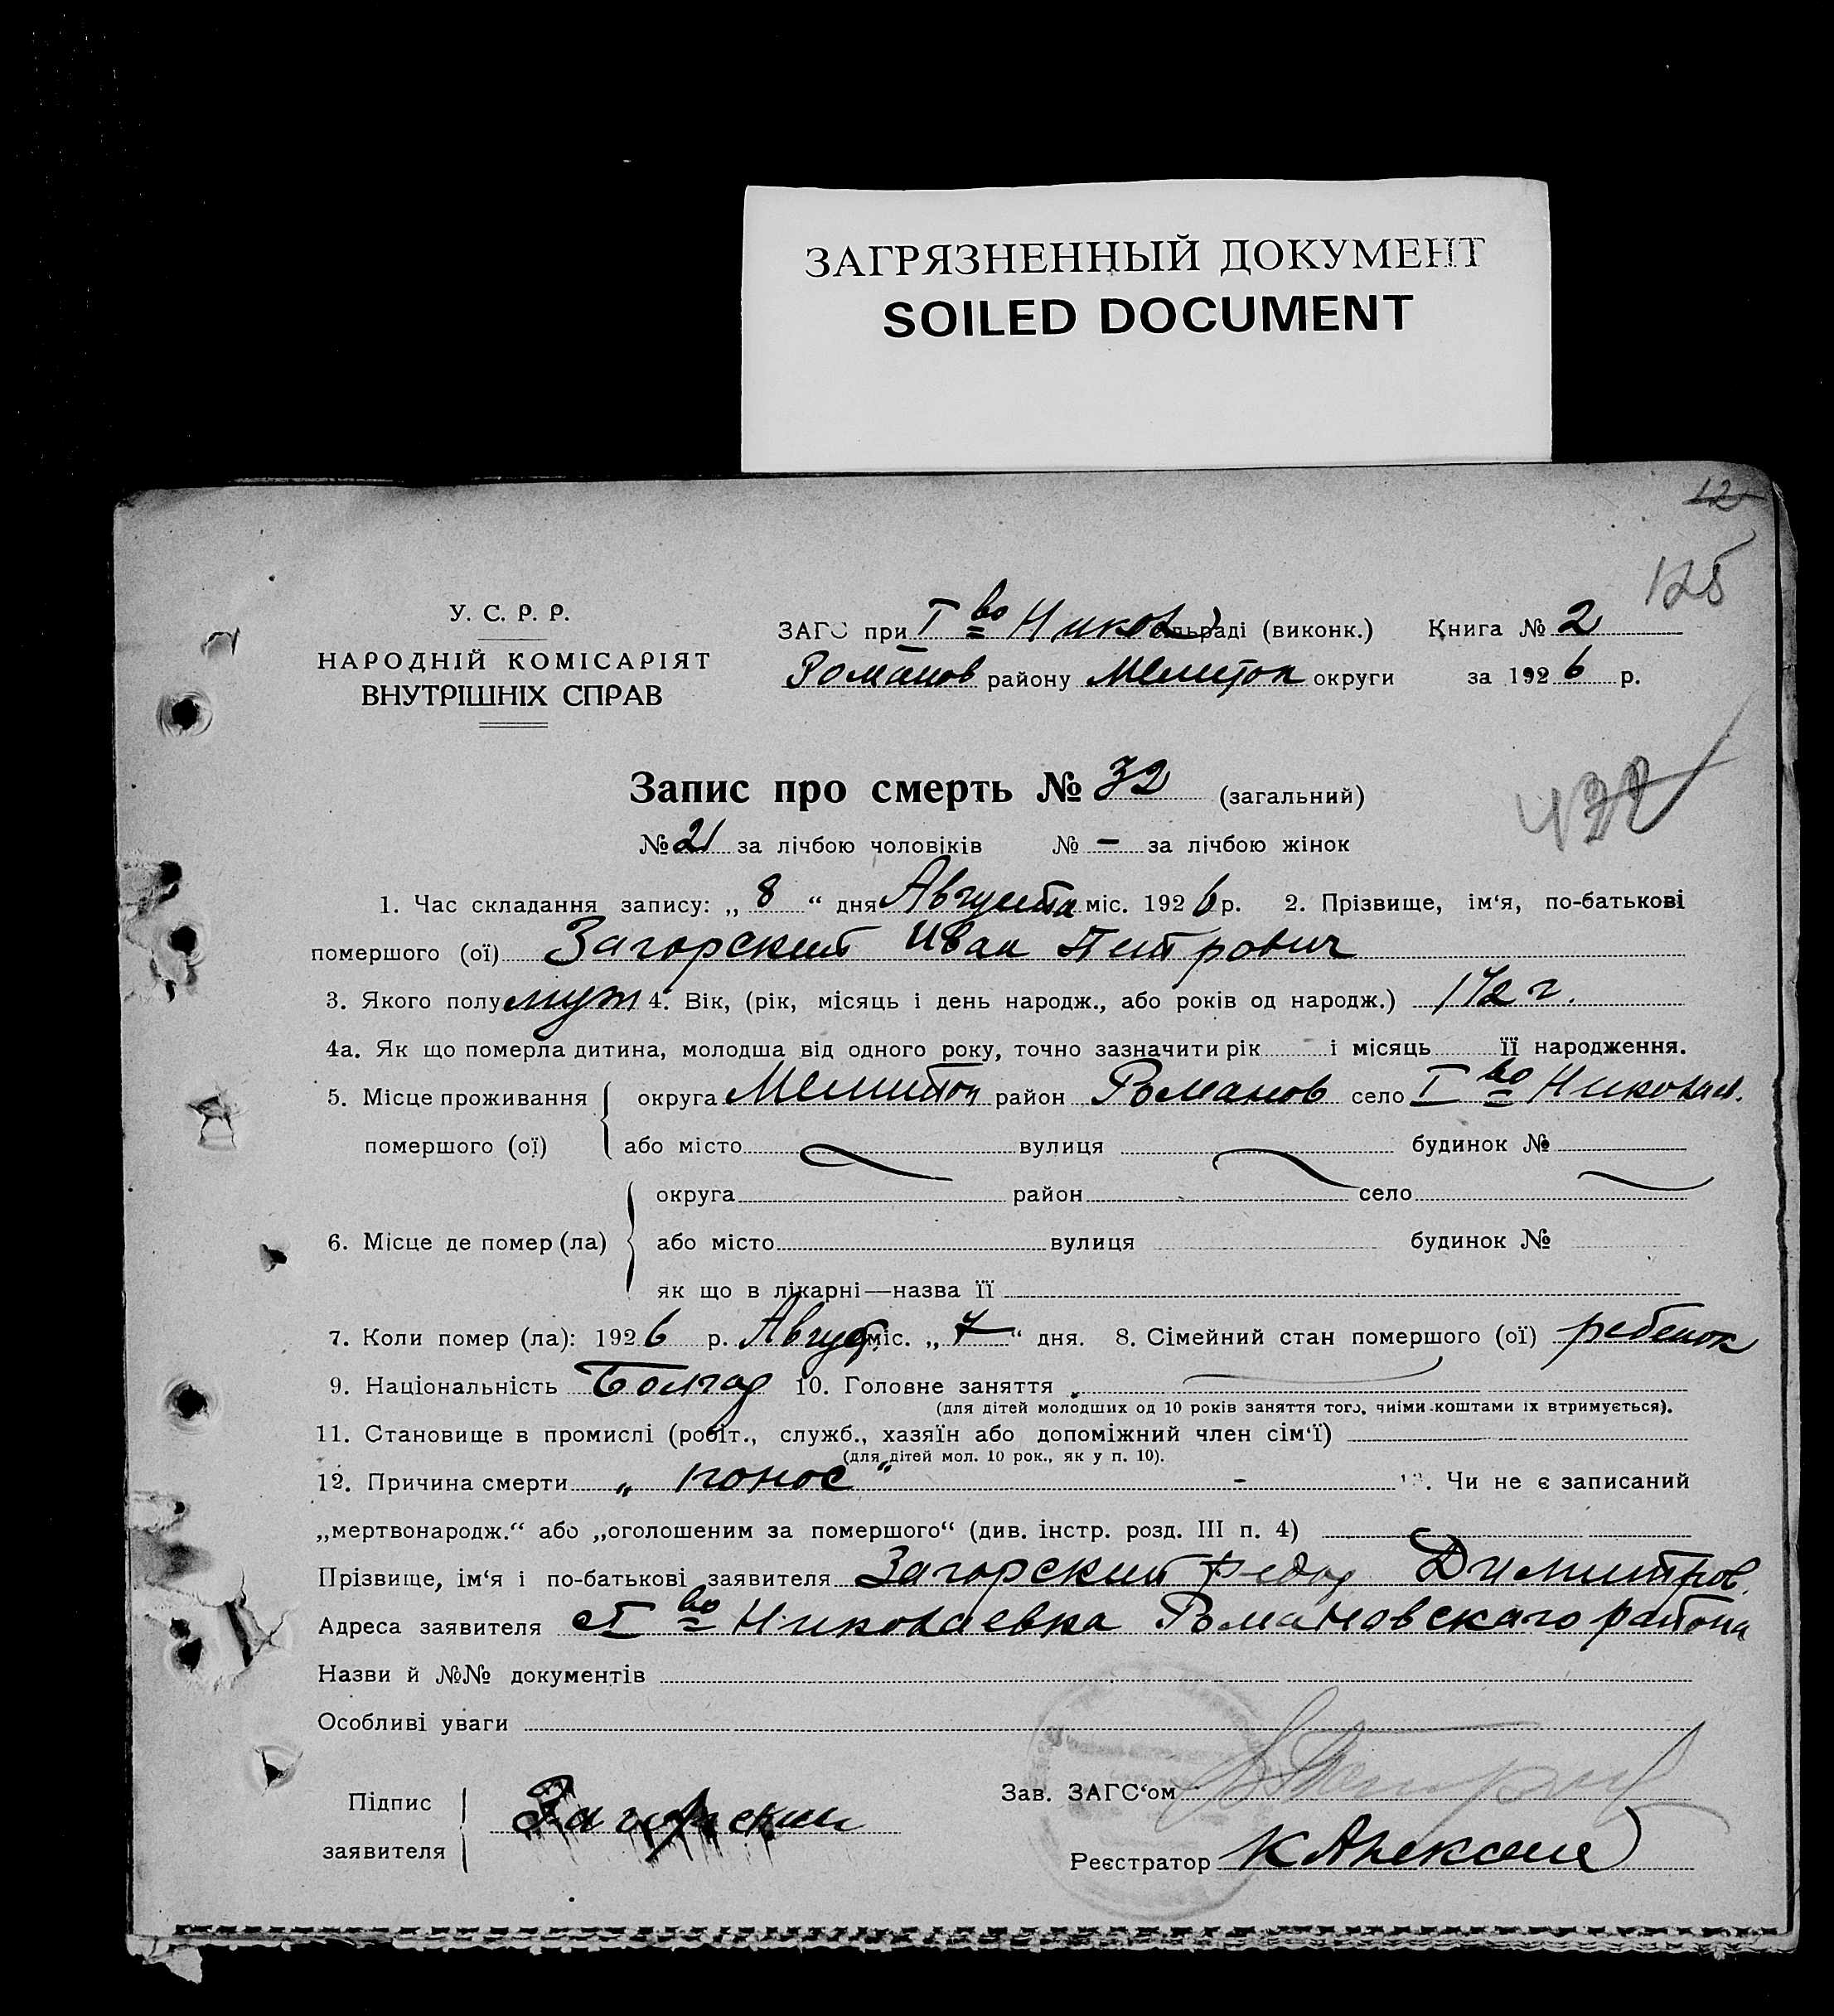 ЗАГРЯЗНЕННЫЙ ДОКУМЕНТ
SOILED DOCUMENT
12
125
У. С. Р. Р.
НАРОДНІЙ КОМІСАРІЯТ
ВНУТРІШНІХ СПРАВ
ЗАГС при I во Никол сільраді (виконк.) Книга № 2
Романов району Мелитоп округи за 1926 р.
Запис про смерть № 32 (загальний)
№ 21 за лічбою чоловіків № – за лічбою жінок
1. Час складання запису: „ 8 “ дня Августа міс. 1926 р. 2. Прізвище, ім‘я, по-батькові
помершого (ої) Загорский Иван Петрович
3. Якого полу муж 4. Вік, (рік, місяць і день народж., або років од народж.) 1 1/2 г.
4а. Як що померла дитина, молодша від одного року, точно зазначити рік і місяць її народження.
5. Місце проживання округа Мелитоп район Романов село I во Николаев.
помершого (ої) або місто вулиця будинок №
округа район село
6. Місце де помер (ла) або місто вулиця будинок №
як що в лікарні—назва її
7. Коли помер (ла): 1926 р. Август міс. „ 7 “ дня. 8. Сімейний стан помершого (ої) ребенок
9. Національність Болгар 10. Головне заняття
(для дітей молодших од 10 років заняття того, чиїми коштами їх втримується).
11. Становище в промислі (робіт., служб., хазяїн або допоміжний член сім‘ї)
(для дітей мол. 10 рок., як у п. 10).
12. Причина смерти „ понос “ - 13. Чи не є записаний
„мертвонародж.“ або „оголошеним за помершого“ (див. інстр. розд. III п. 4)
Прізвище, ім‘я і по-батькові заявителя Загорский Федор Димитров.
Адреса заявителя с I во Николаевка Романовскаго района
Назви й №№ документів
Особливі уваги
Підпис
заявителя Загорский
Зав. ЗАГС‘ом
Реєстратор